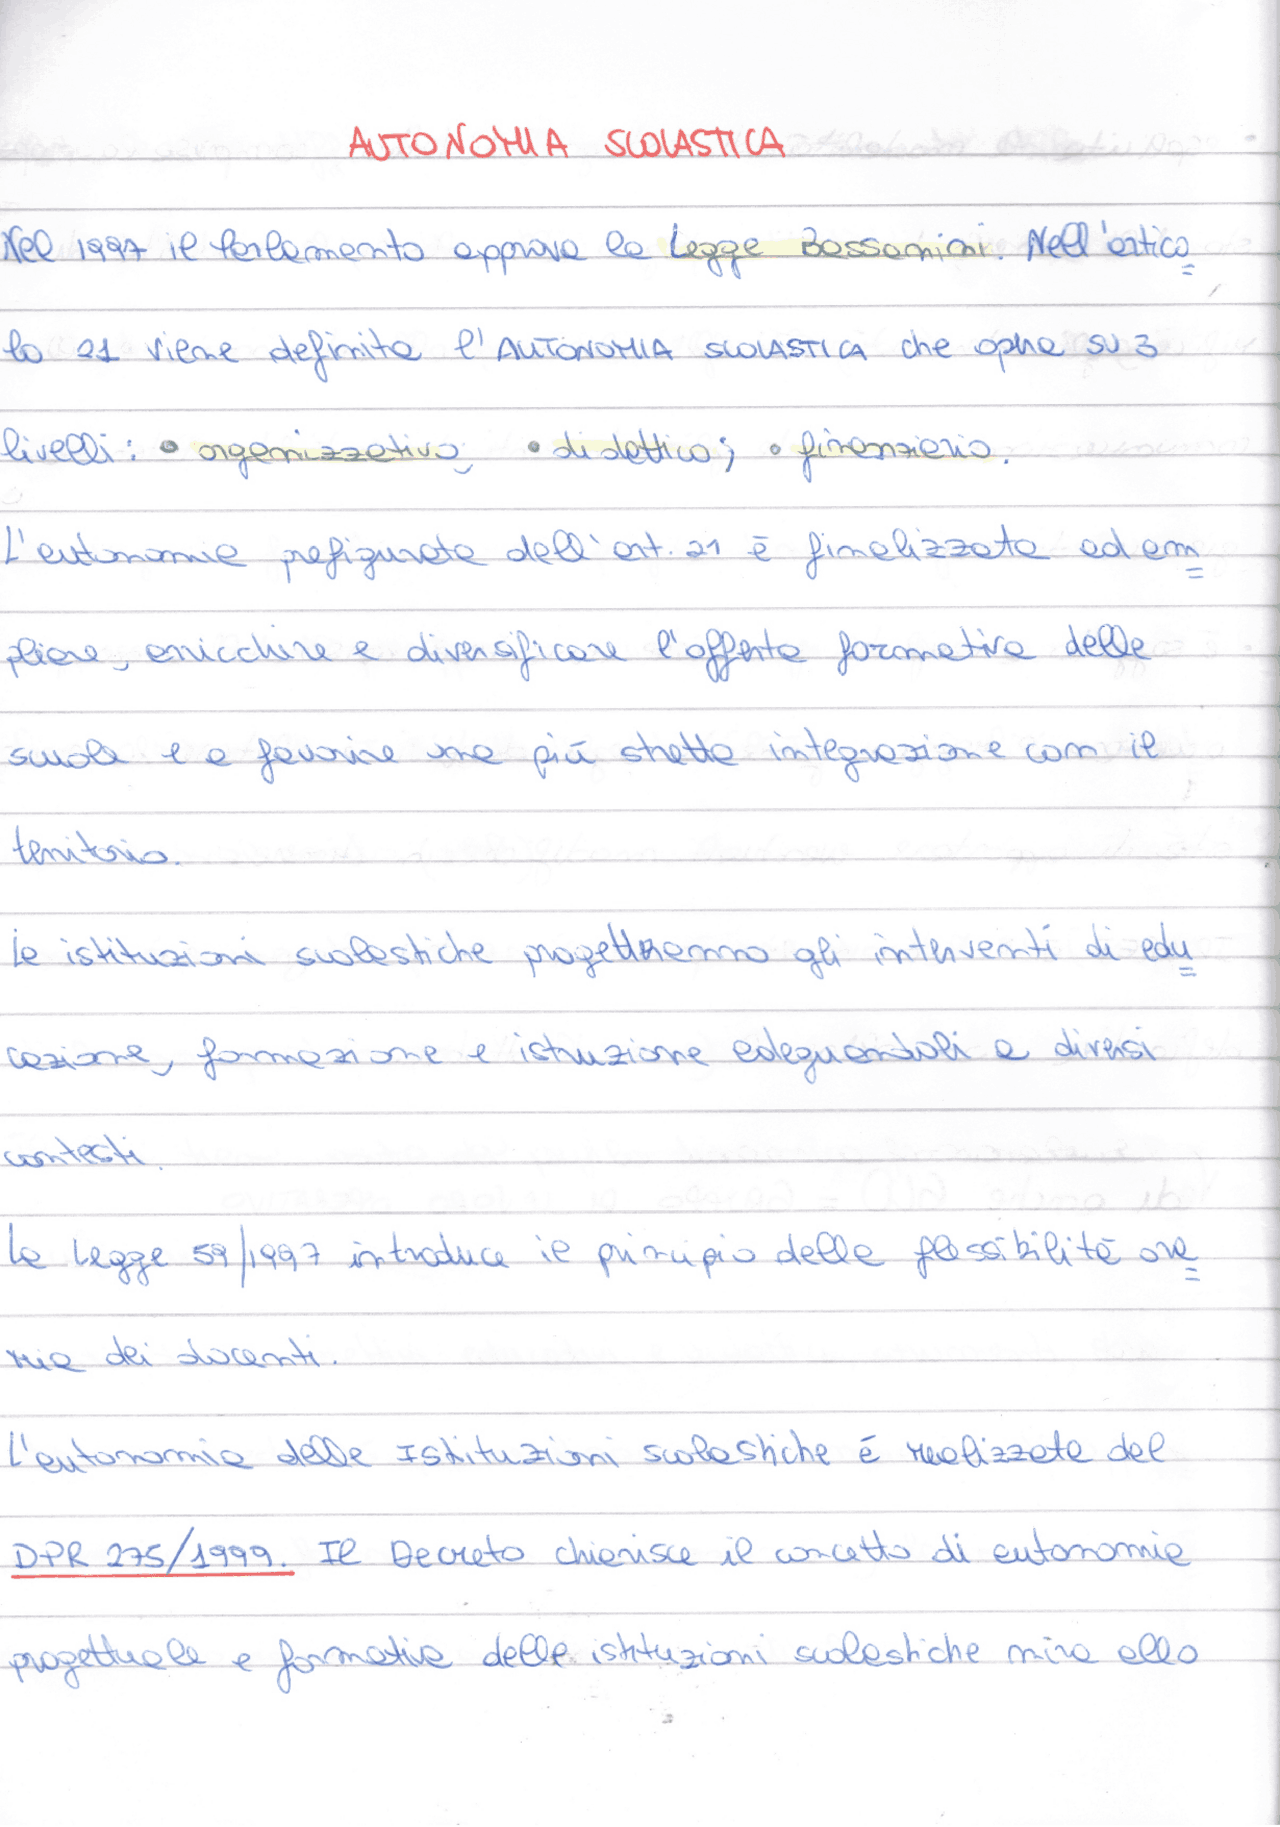 AUTONOMIA SCOLASTICA
Nel 1997 il Parlamento approva la Legge Bassanini. Nell'artico
lo 21 viene definita l'AUTONOMIA SCOLASTICA che opera su 3
livelli: • organizzativo, • didattico; • finanziario.
L'autonomia prefigurata dall'art. 21 è finalizzata ad am
pliare, arricchire e diversificare l'offerta formativa delle
scuole e a favorire una più stretta integrazione con il
territorio.
Le istituzioni scolastiche progetteranno gli interventi di edu
cazione, formazione e istruzione adeguandoli a diversi
contesti.
La Legge 59/1997 introduce il principio della flessibilità ora
ria dei docenti.
L'autonomia delle Istituzioni scolastiche é realizzata dal
DPR 275/1999. Il Decreto chiarisce il concetto di autonomia
progettuale e formativa delle istituzioni scolastiche mira allo